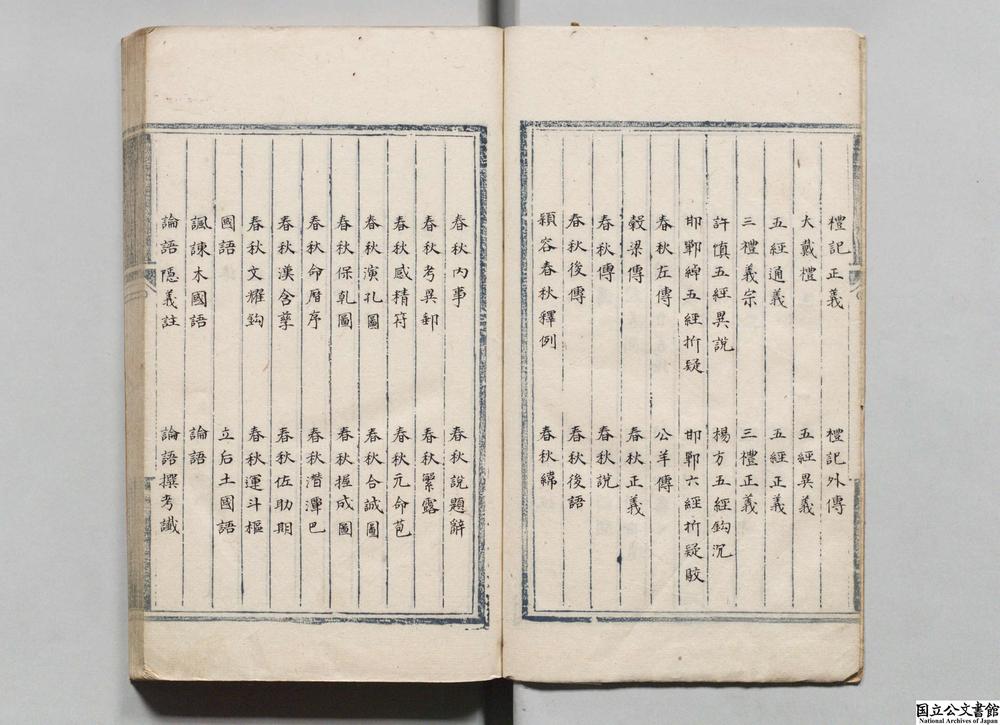 禮記正義 禮記外傳
大戴禮 五經異義
五經通義 五經正義
三禮義宗 三禮正義
許慎五經異說 楊方五經鈎沉
邯鄲綽五經折疑 邯鄲六經折疑
春秋左傳 公羊傳
穀梁傳 春秋正義
春秋傳 春秋說
春秋後傳 春秋後語
頴容春秋釋例 春秋緯
春秋內事 春秋說題辭
春秋考異郵 春秋繁露
春秋感精符 春秋元命苞
春秋演孔圖 春秋合誠圖
春秋保乾圖 春秋握成圖
春秋命曆序 春秋潛渾巴
春秋漢含孳 春秋佐助期
春秋文耀鈎 春秋運斗樞
國語 立后土國語
諷諫木國語 論語
論語隠義註 論語撰考讖
国立公文書館
National Archives of Japan